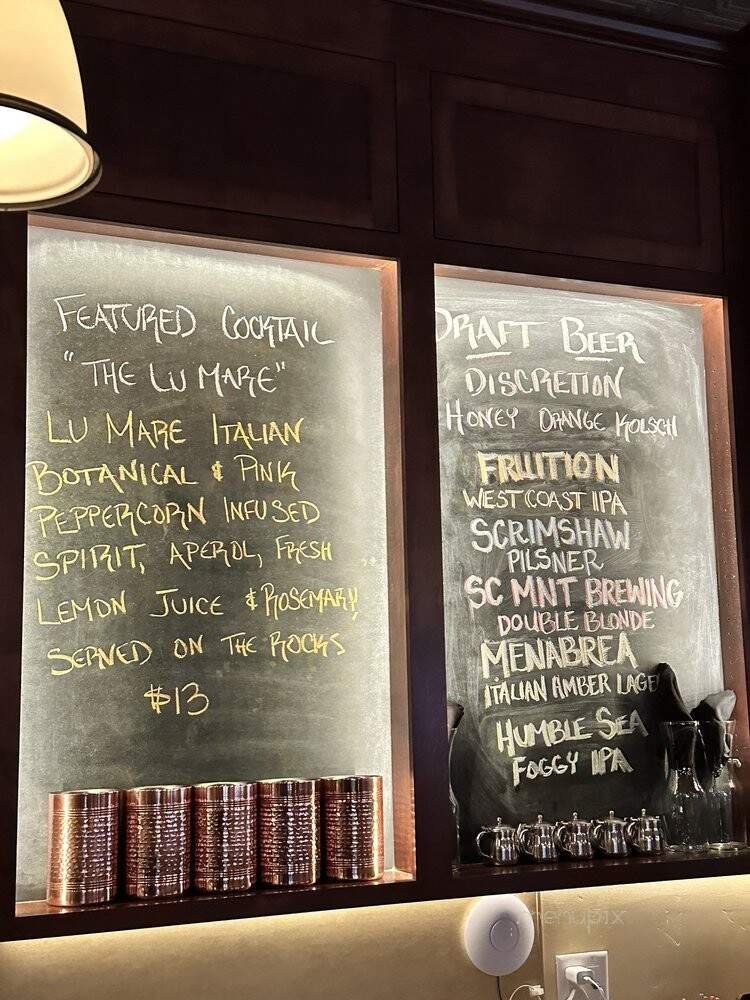 FEATURED COCKTAIL
"THE LU MARE"
LU MARE ITALIAN
BOTANICAL & PINK
PEPPERCORN INFUSED
SPIRIT, APEROL, FRESH
LEMON JUICE & ROSEMARY
SERVED ON THE ROCKS
$13
DRAFT BEER
DISCRETION
HONEY ORANGE KOLSCH
FRUITION
WEST COAST IPA
SCRIMSHAW
PILSNER
SC MNT BREWING
DOUBLE BLONDE
MENABREA
ITALIAN AMBER LAGER
HUMBLE SEA
FOGGY IPA
menupix